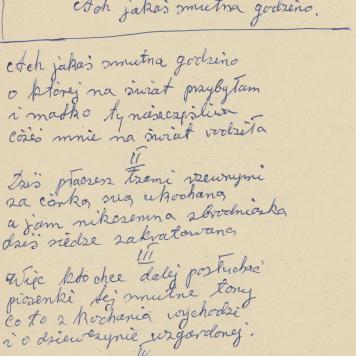 Ach jakaś smutna godzino.
Ach jakaś smutna godzino
o której na świat przybyłam
i matko ty nieszczęśliwa
cożeś mnie na świat rodziła
II
Dziś płaczesz łzami rzewnymi
za córką swą ukochaną
a jam nikczemna zbrodniarka
dziś siedze zakratowana
III
Więc kto chce dalej posłuchać
piosenki tej smutne tony
co to z kochania wychodzi
i o dziewczynie wzgardzonej.
IV